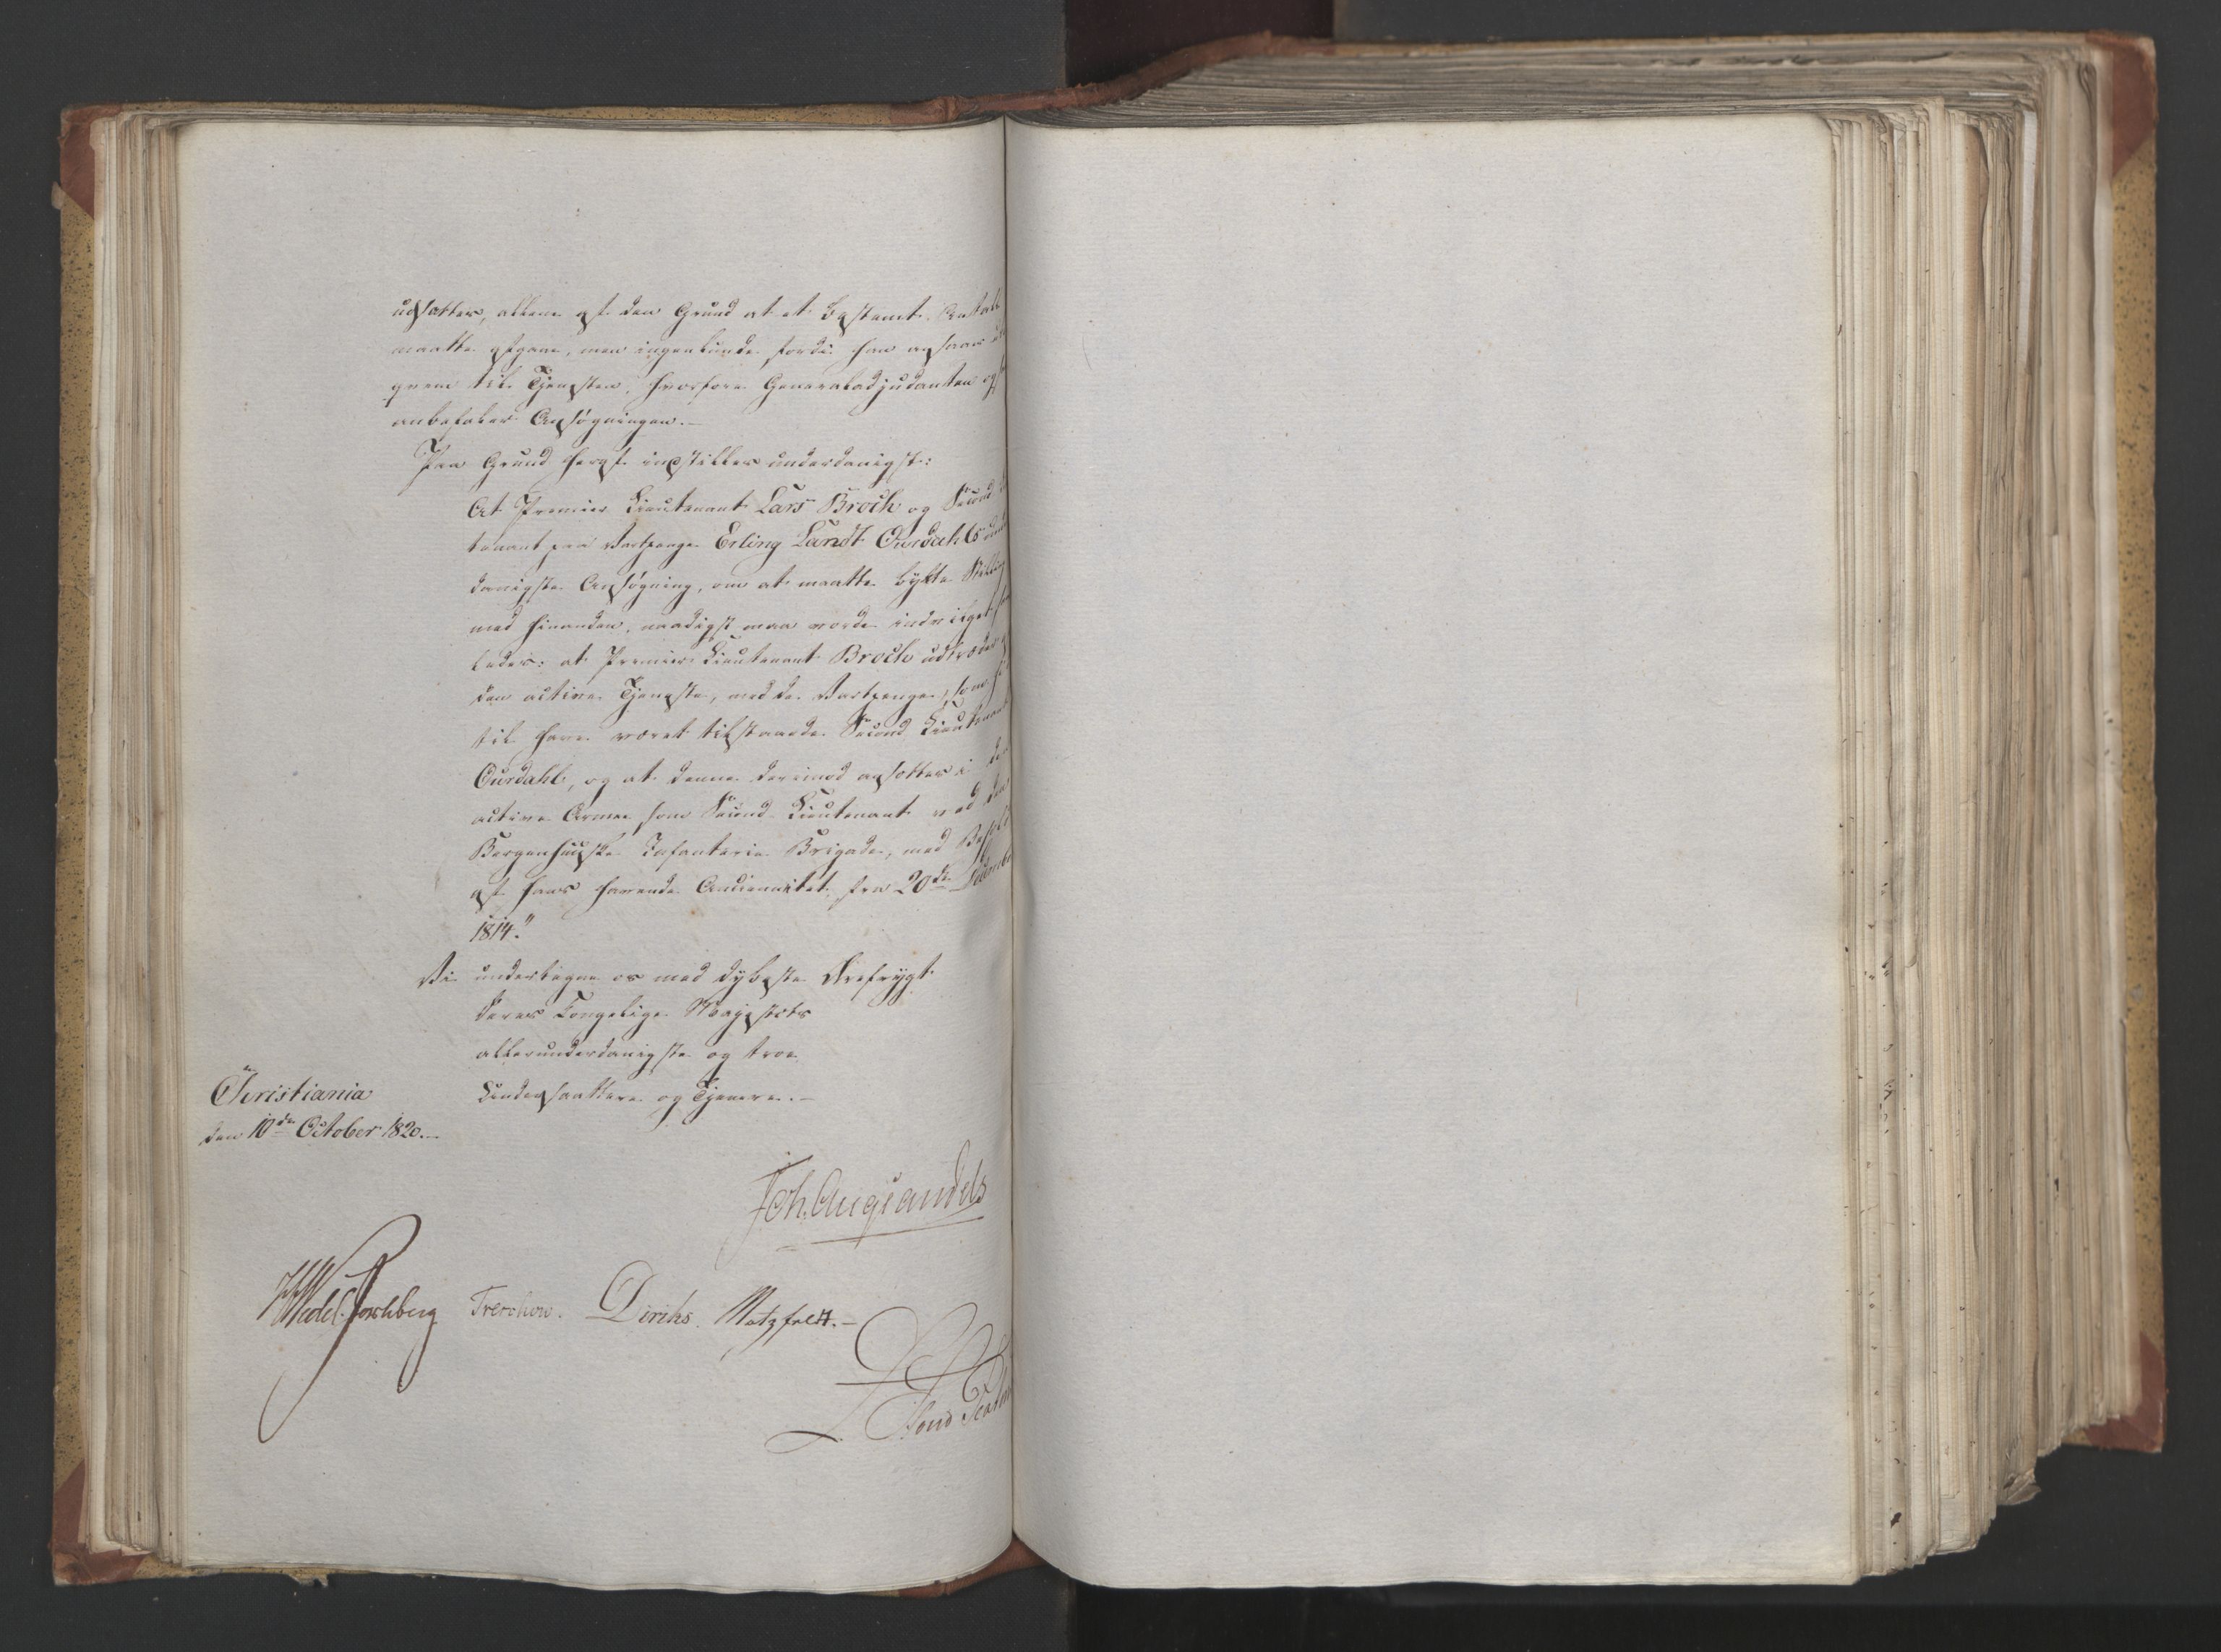 udsattes, allene af den Grund at et bestemt Antal
maatte afgaae, men ingenlunde fordi han ansaaes
til Tjenesten, hvorfore Generaladjudanten
anbefaler Ansøgningen.—
Paa Grund heraf indstilles underdanigst:
At Premier Lieutenant Lars Broch og Second
tenant paa Vartpenge Erling Landt Ourdahls
danigste Ansøgning, om at maatte bytte
med hinanden, naadigst maa vorde indvilget
ledes: at Premier Lieutenant Broch udtræder
den active Tjeneste, med de Vartpenge, som
til have været tilstaaede Second Lieutenant
Ourdahl, og at denne derimod ansættes i den
active Armee som Second Lieutenant ved den
Bergenhuuske Infanterie Brigade, med
af hans havende Anciennitet fra 20de
1814."
Vi undertegne os med dybeste Ærefrygt
Deres Kongelige Majestæts
allerunderdanigste og troe
Undersaattere og Tjenere.—
Christiania
den 10de October 1820.—
Joh. Aug Sandels
Wedel Jarlsberg Treschow. Diriks. Motzfeldt.—